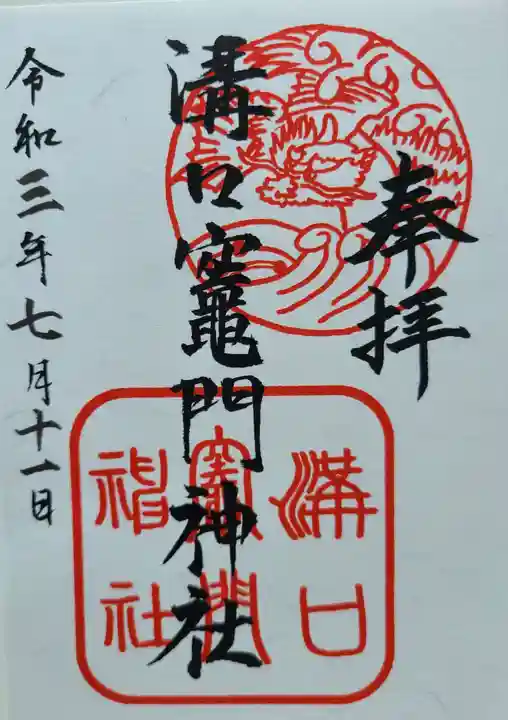 奉拝
溝口竈門神社
令和三年七月十一日
溝口
竈門
神社